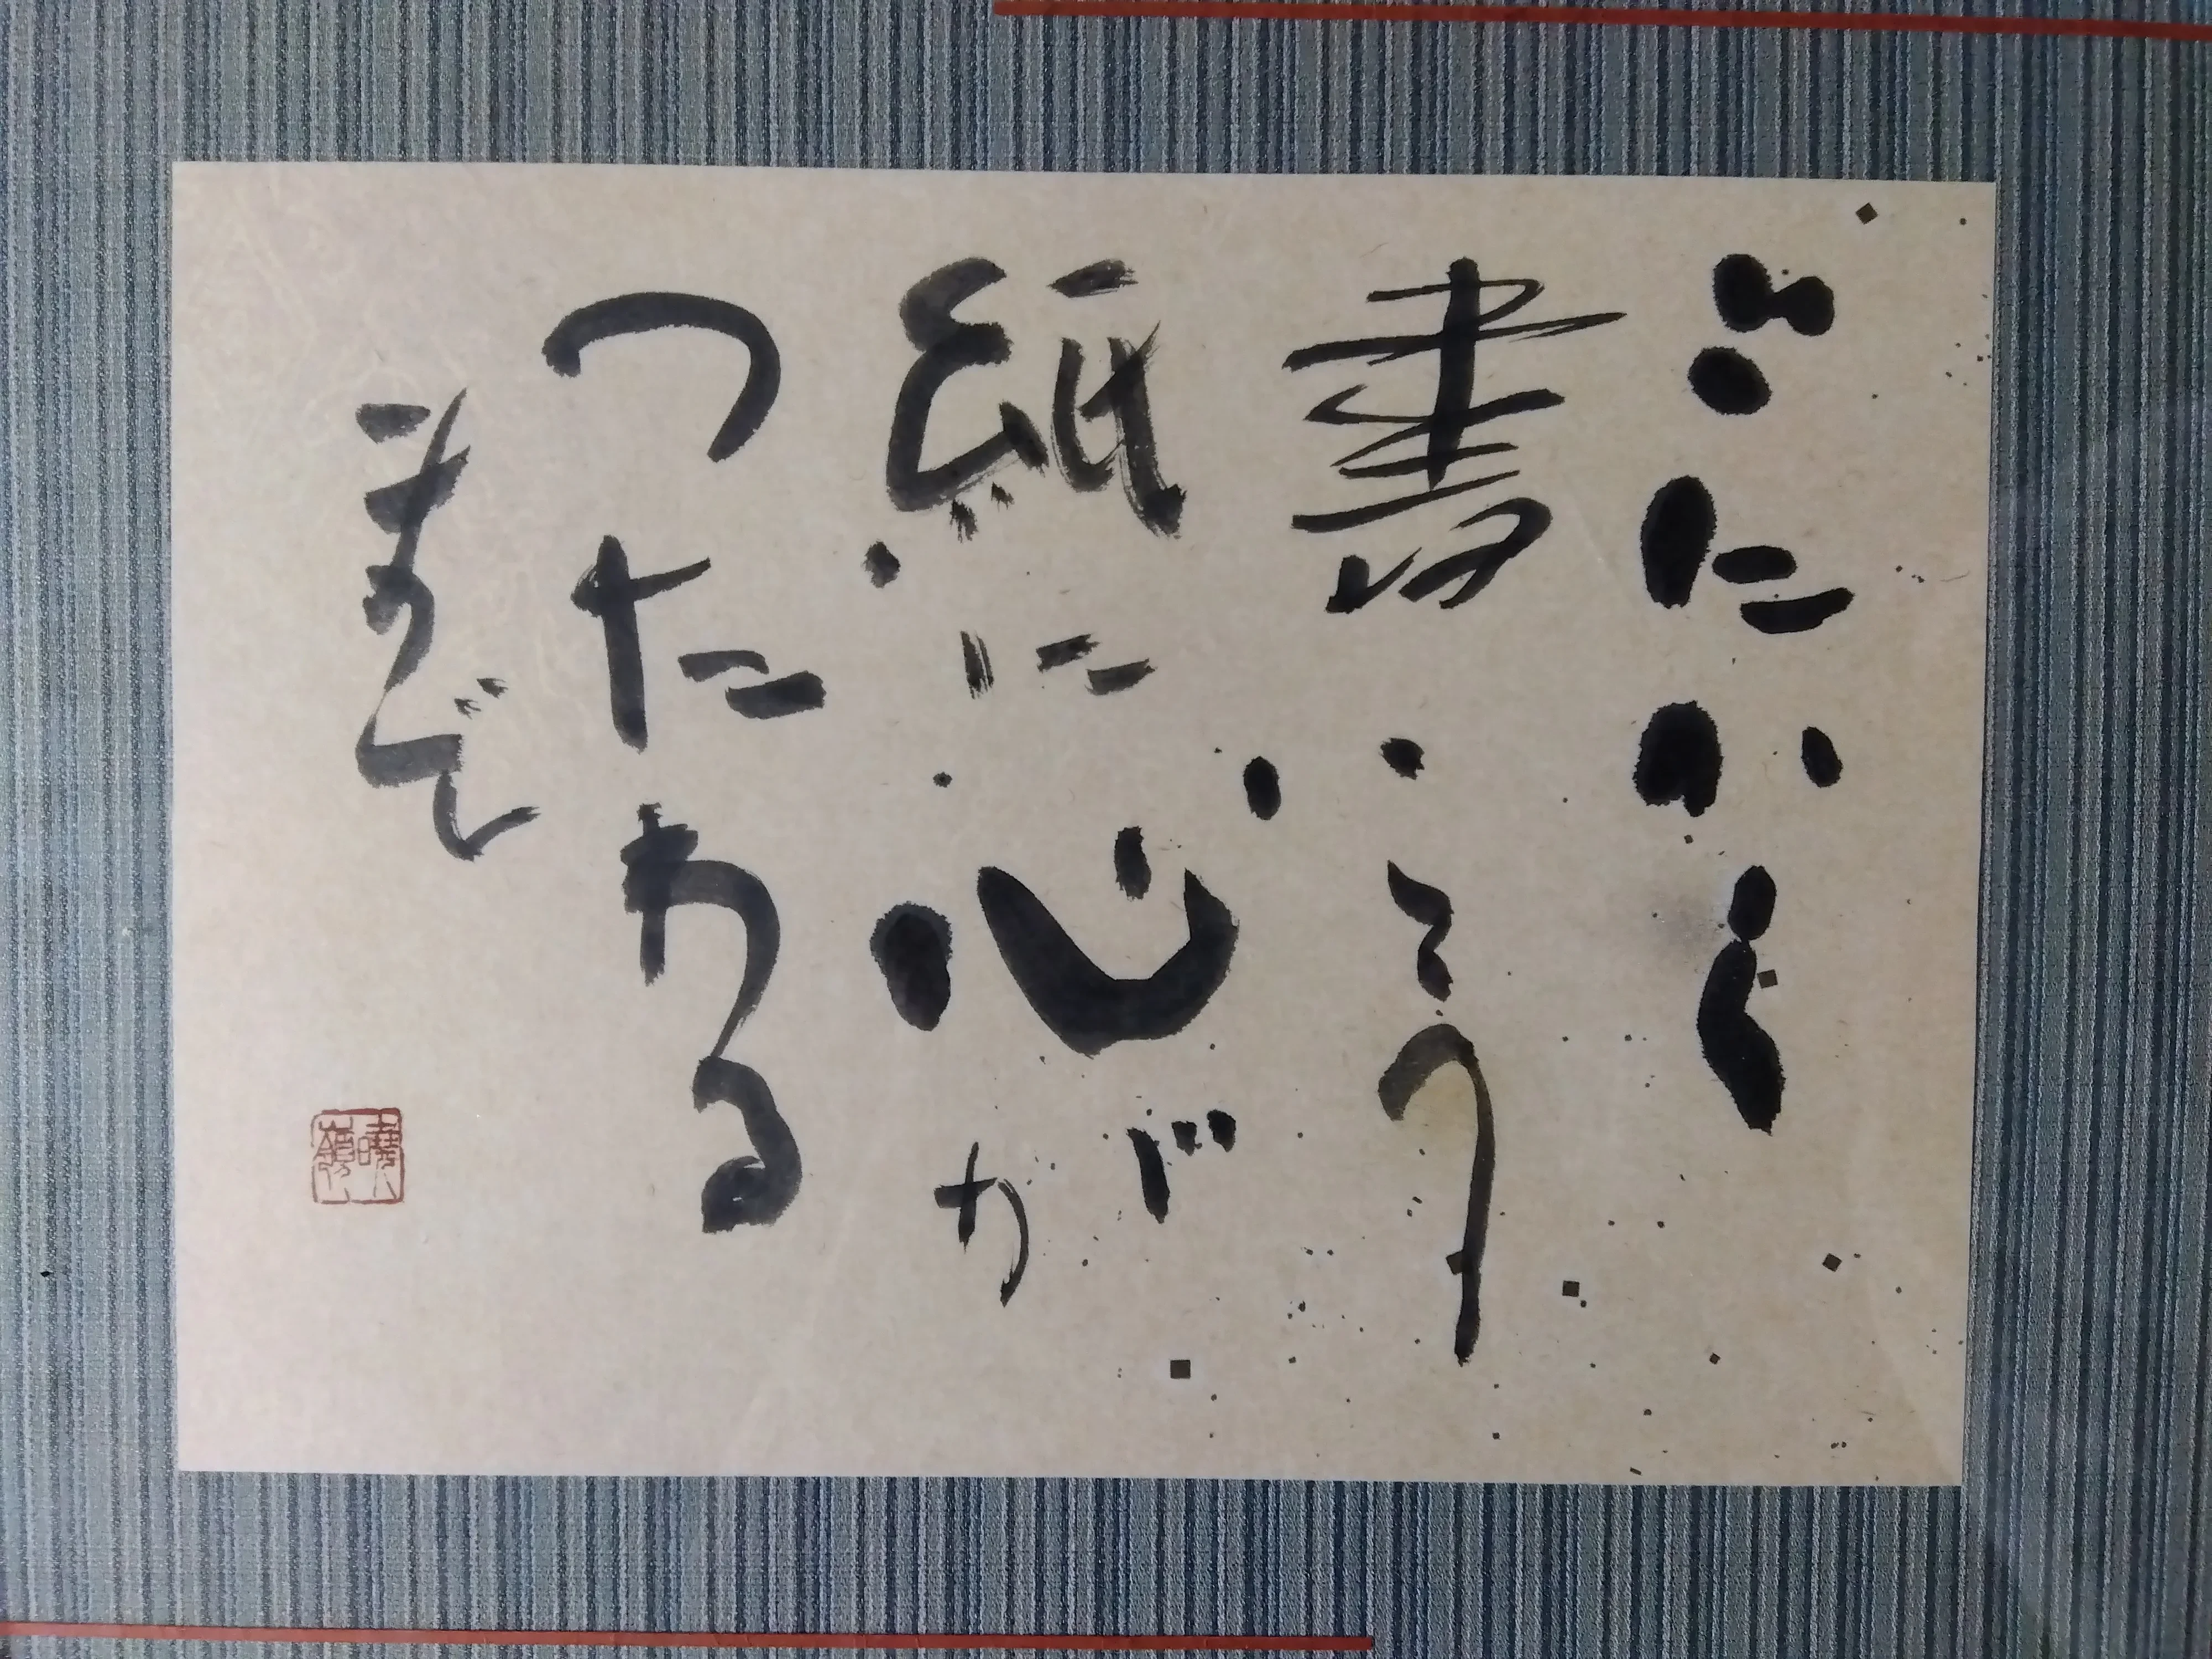 とにかく
書こう
紙に心が
つたわる
まで
曉嶺